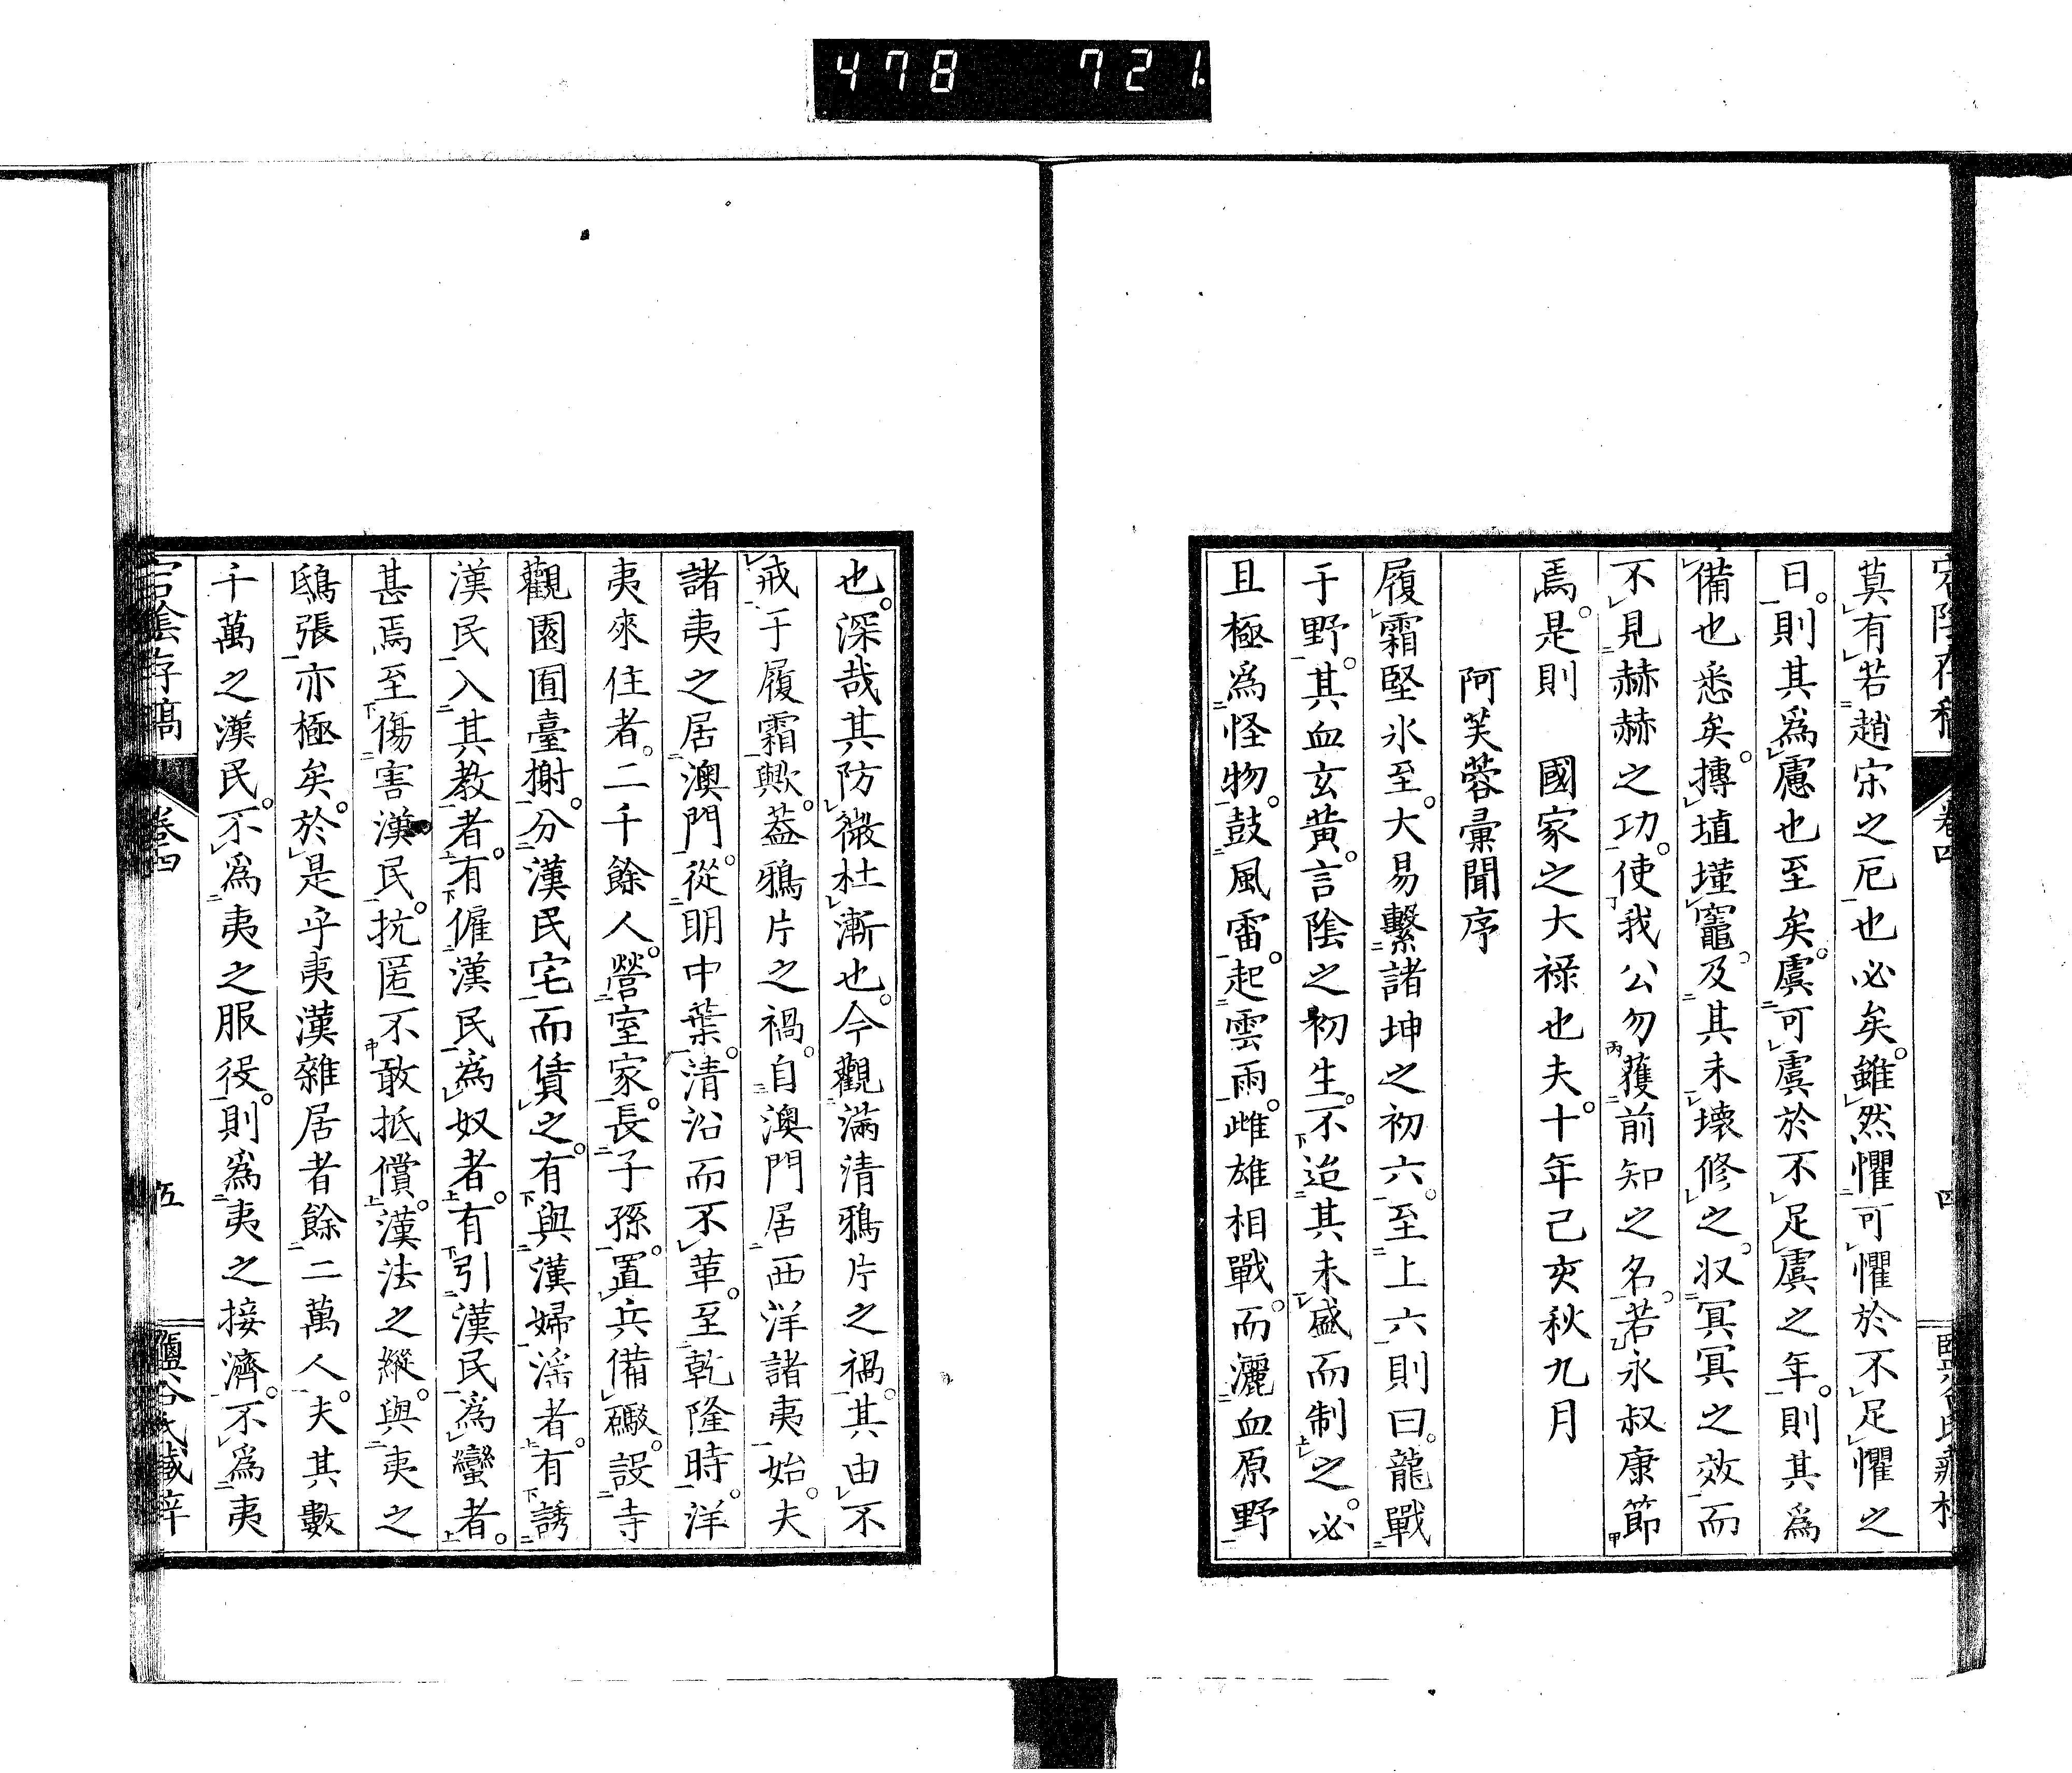 478 721
莫有若趙宋之厄也必矣。雖然懼可懼於不足懼之
日。則其爲慮也至矣。虞可虞於不足虞之年。則其爲
備也悉矣。摶埴墐竈。及其未壊修之。収冥冥之效而
不見赫赫之功。使我公勿獲前知之名。若永叔康節
焉。是則 國家之大祿也夫。十年己亥秋九月
阿芙蓉彙聞序
履霜堅氷至。大易繫諸坤之初六。至上六則曰。龍戰
于野。其血玄黄。言陰之初生。不迨其未盛而制之。必
且極爲怪物。鼓風雷。起雲雨。雌雄相戰。而灑血原野
也。深哉其防微杜漸也。今觀滿清鴉片之禍。其由不
戒于履霜歟。葢鴉片之禍。自澳門居西洋諸夷始。夫
諸夷之居澳門。從明中葉。清沿而不革。至乾隆時。洋
夷來住者。二千餘人。營室家。長子孫。置兵備礟。設寺
觀園囿臺榭。分漢民宅而賃之。有與漢婦滛者。有誘
漢民入其教者。有僱漢民爲奴者。有引漢民爲蠻者。
甚焉至傷害漢民。抗匿不敢抵償。漢法之縱。與夷之
鴟張亦極矣。於是乎夷漢雜居者餘二萬人。夫其數
千萬之漢民。不爲夷之服役。則爲夷之接濟。不爲夷
宕陰存稿 卷四 五 鹽谷氏藏梓